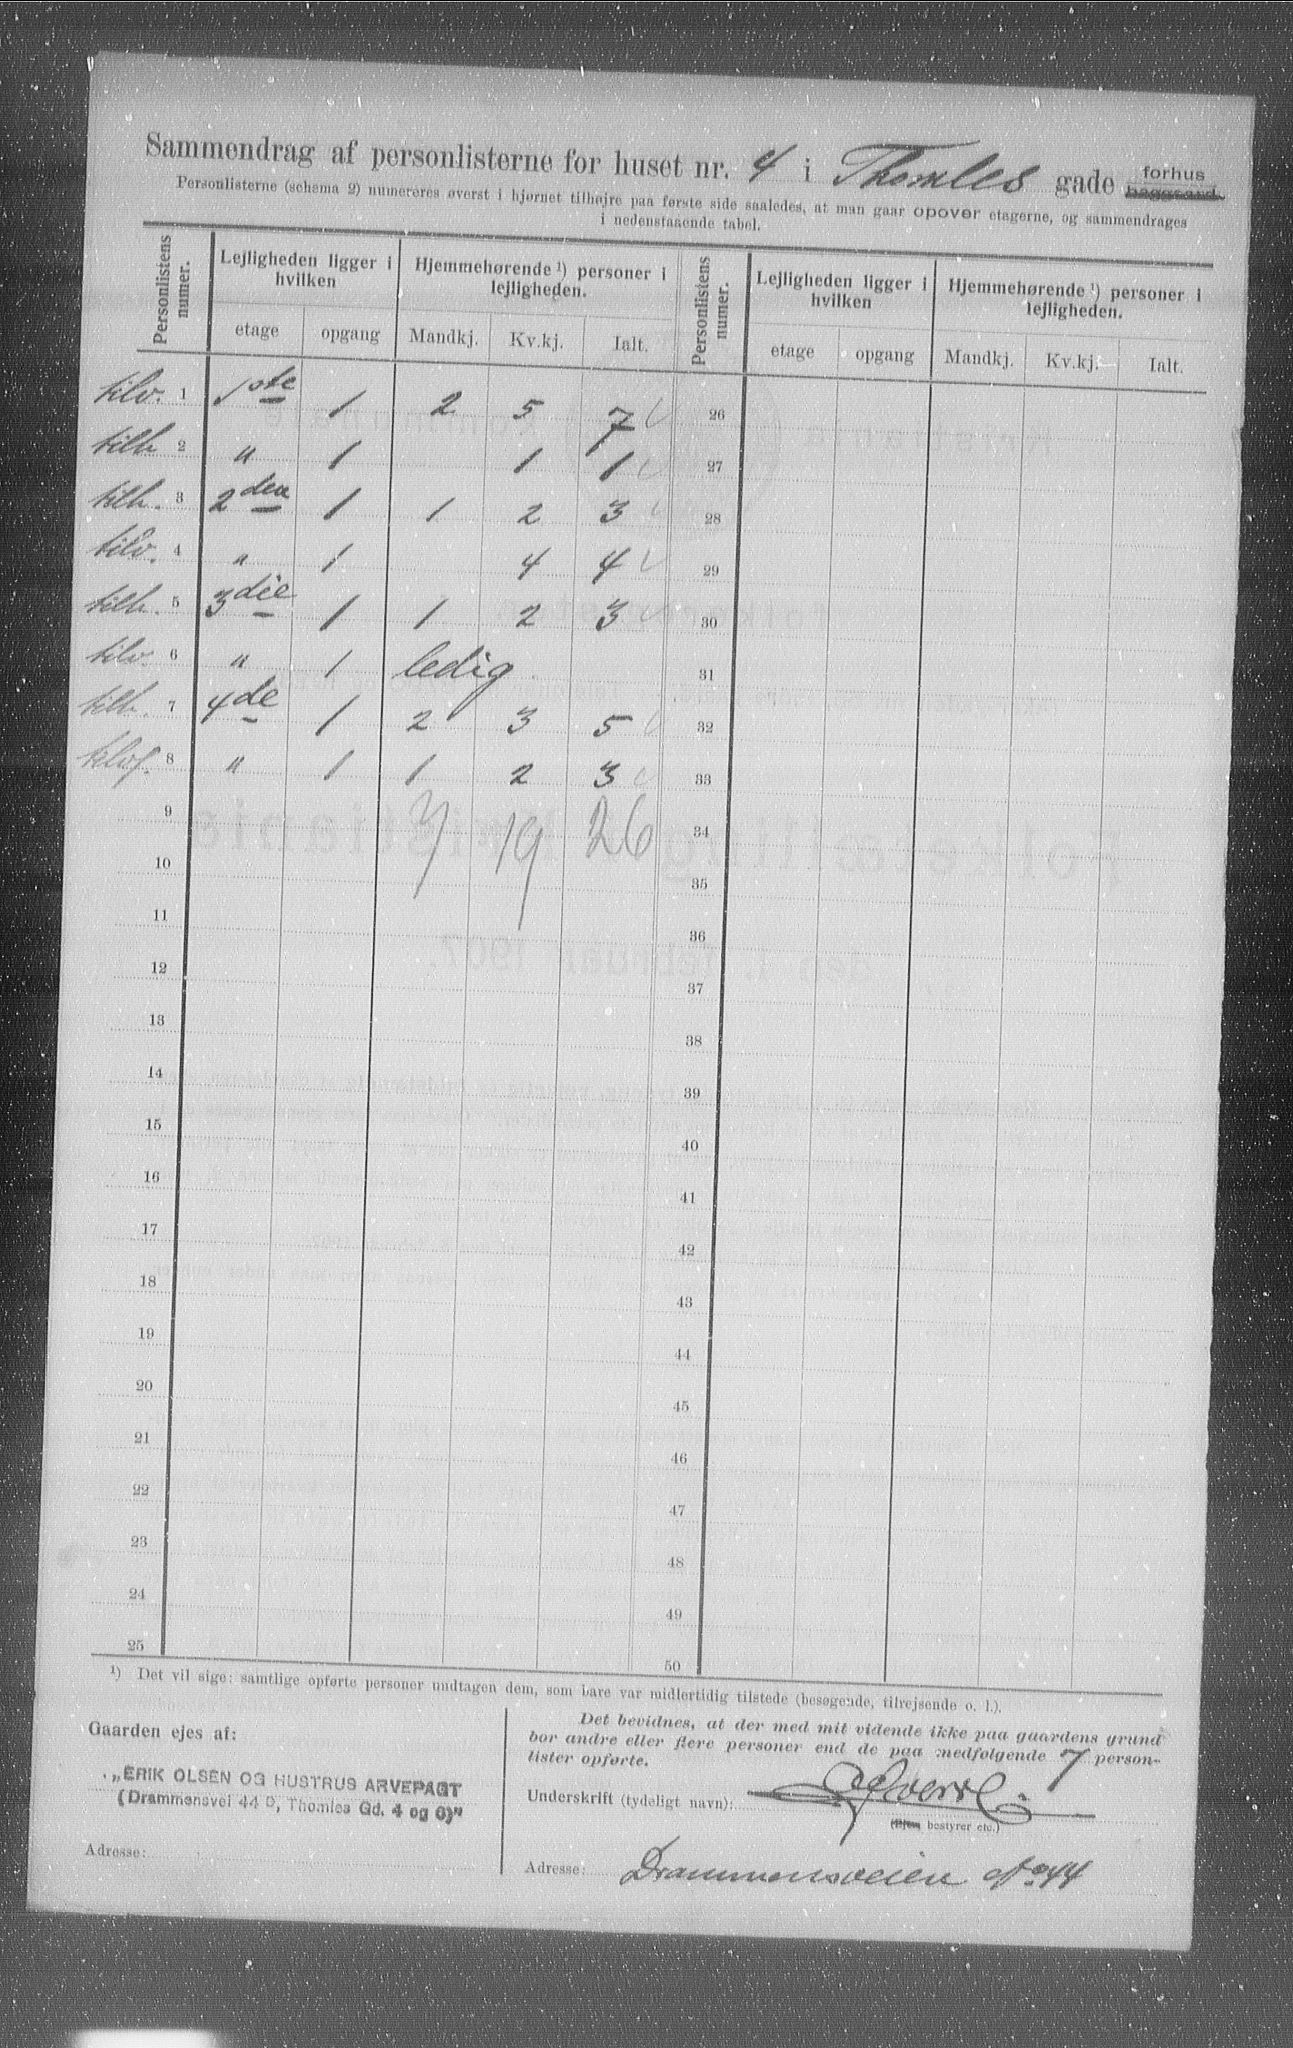 Sammendrag af personlisterne for huset nr. 4 i Thomles gade forhus baggaard.
Personlisterne (schema 2) numereres øverst i hjørnet tilhøjre paa første side saaledes, at man gaar opover etagerne, og sammendrages
i nedenstaaende tabel.
Personlistens numer. Lejligheden ligger i hvilken Hjemmehørende ¹) personer i lejligheden. Personlistens numer. Lejligheden ligger i hvilken Hjemmehørende ¹) personer i lejligheden.
etage opgang Mandkj. Kv.kj. Ialt. etage opgang Mandkj. Kv.kj. Ialt.
tilv. 1 1ste 1 2 5 7 26
tilh 2 " 1 1 1 27
tilh. 3 2den 1 1 2 3 28
tilv. 4 " 1 4 4 29
tilh. 5 3die 1 1 2 3 30
tilv. 6 " 1 ledig. 31
tilh. 7 4de 1 2 3 5 32
8 " 1 1 2 3 33
9 7 19 26 34
10 35
11 36
12 37
13 38
14 39
15 40
16 41
17 42
18 43
19 44
20 45
21 46
22 47
23 48
24 49
25 50
¹) Det vil sige: samtlige opførte personer undtagen dem, som bare var midlertidig tilstede (besøgende, tilrejsende o. l.).
Gaarden ejes af:
„ERIK OLSEN OG HUSTRUS ARVEPAGT
(Drammensvei 44 D, Thomles Gd. 4 og 6)"
Adresse:
Det bevidnes, at der med mit vidende ikke paa gaardens grund
bor andre eller flere personer end de paa medfølgende 7 person-
lister opførte.
Underskrift (tydeligt navn):
(Ejer, bestyrer etc.)
Adresse: Drammensveien No 44